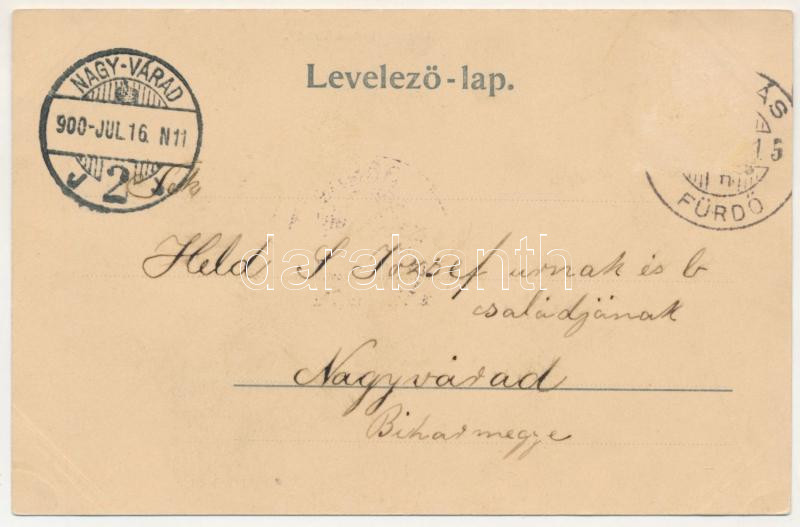 Levelező-lap.
NAGY-VÁRAD
900-JUL.16. N11
2
ÁS
15
FÜRDŐ
Held S József urnak és b
családjának
Nagyvárad
Biharmegye
darabanth.com